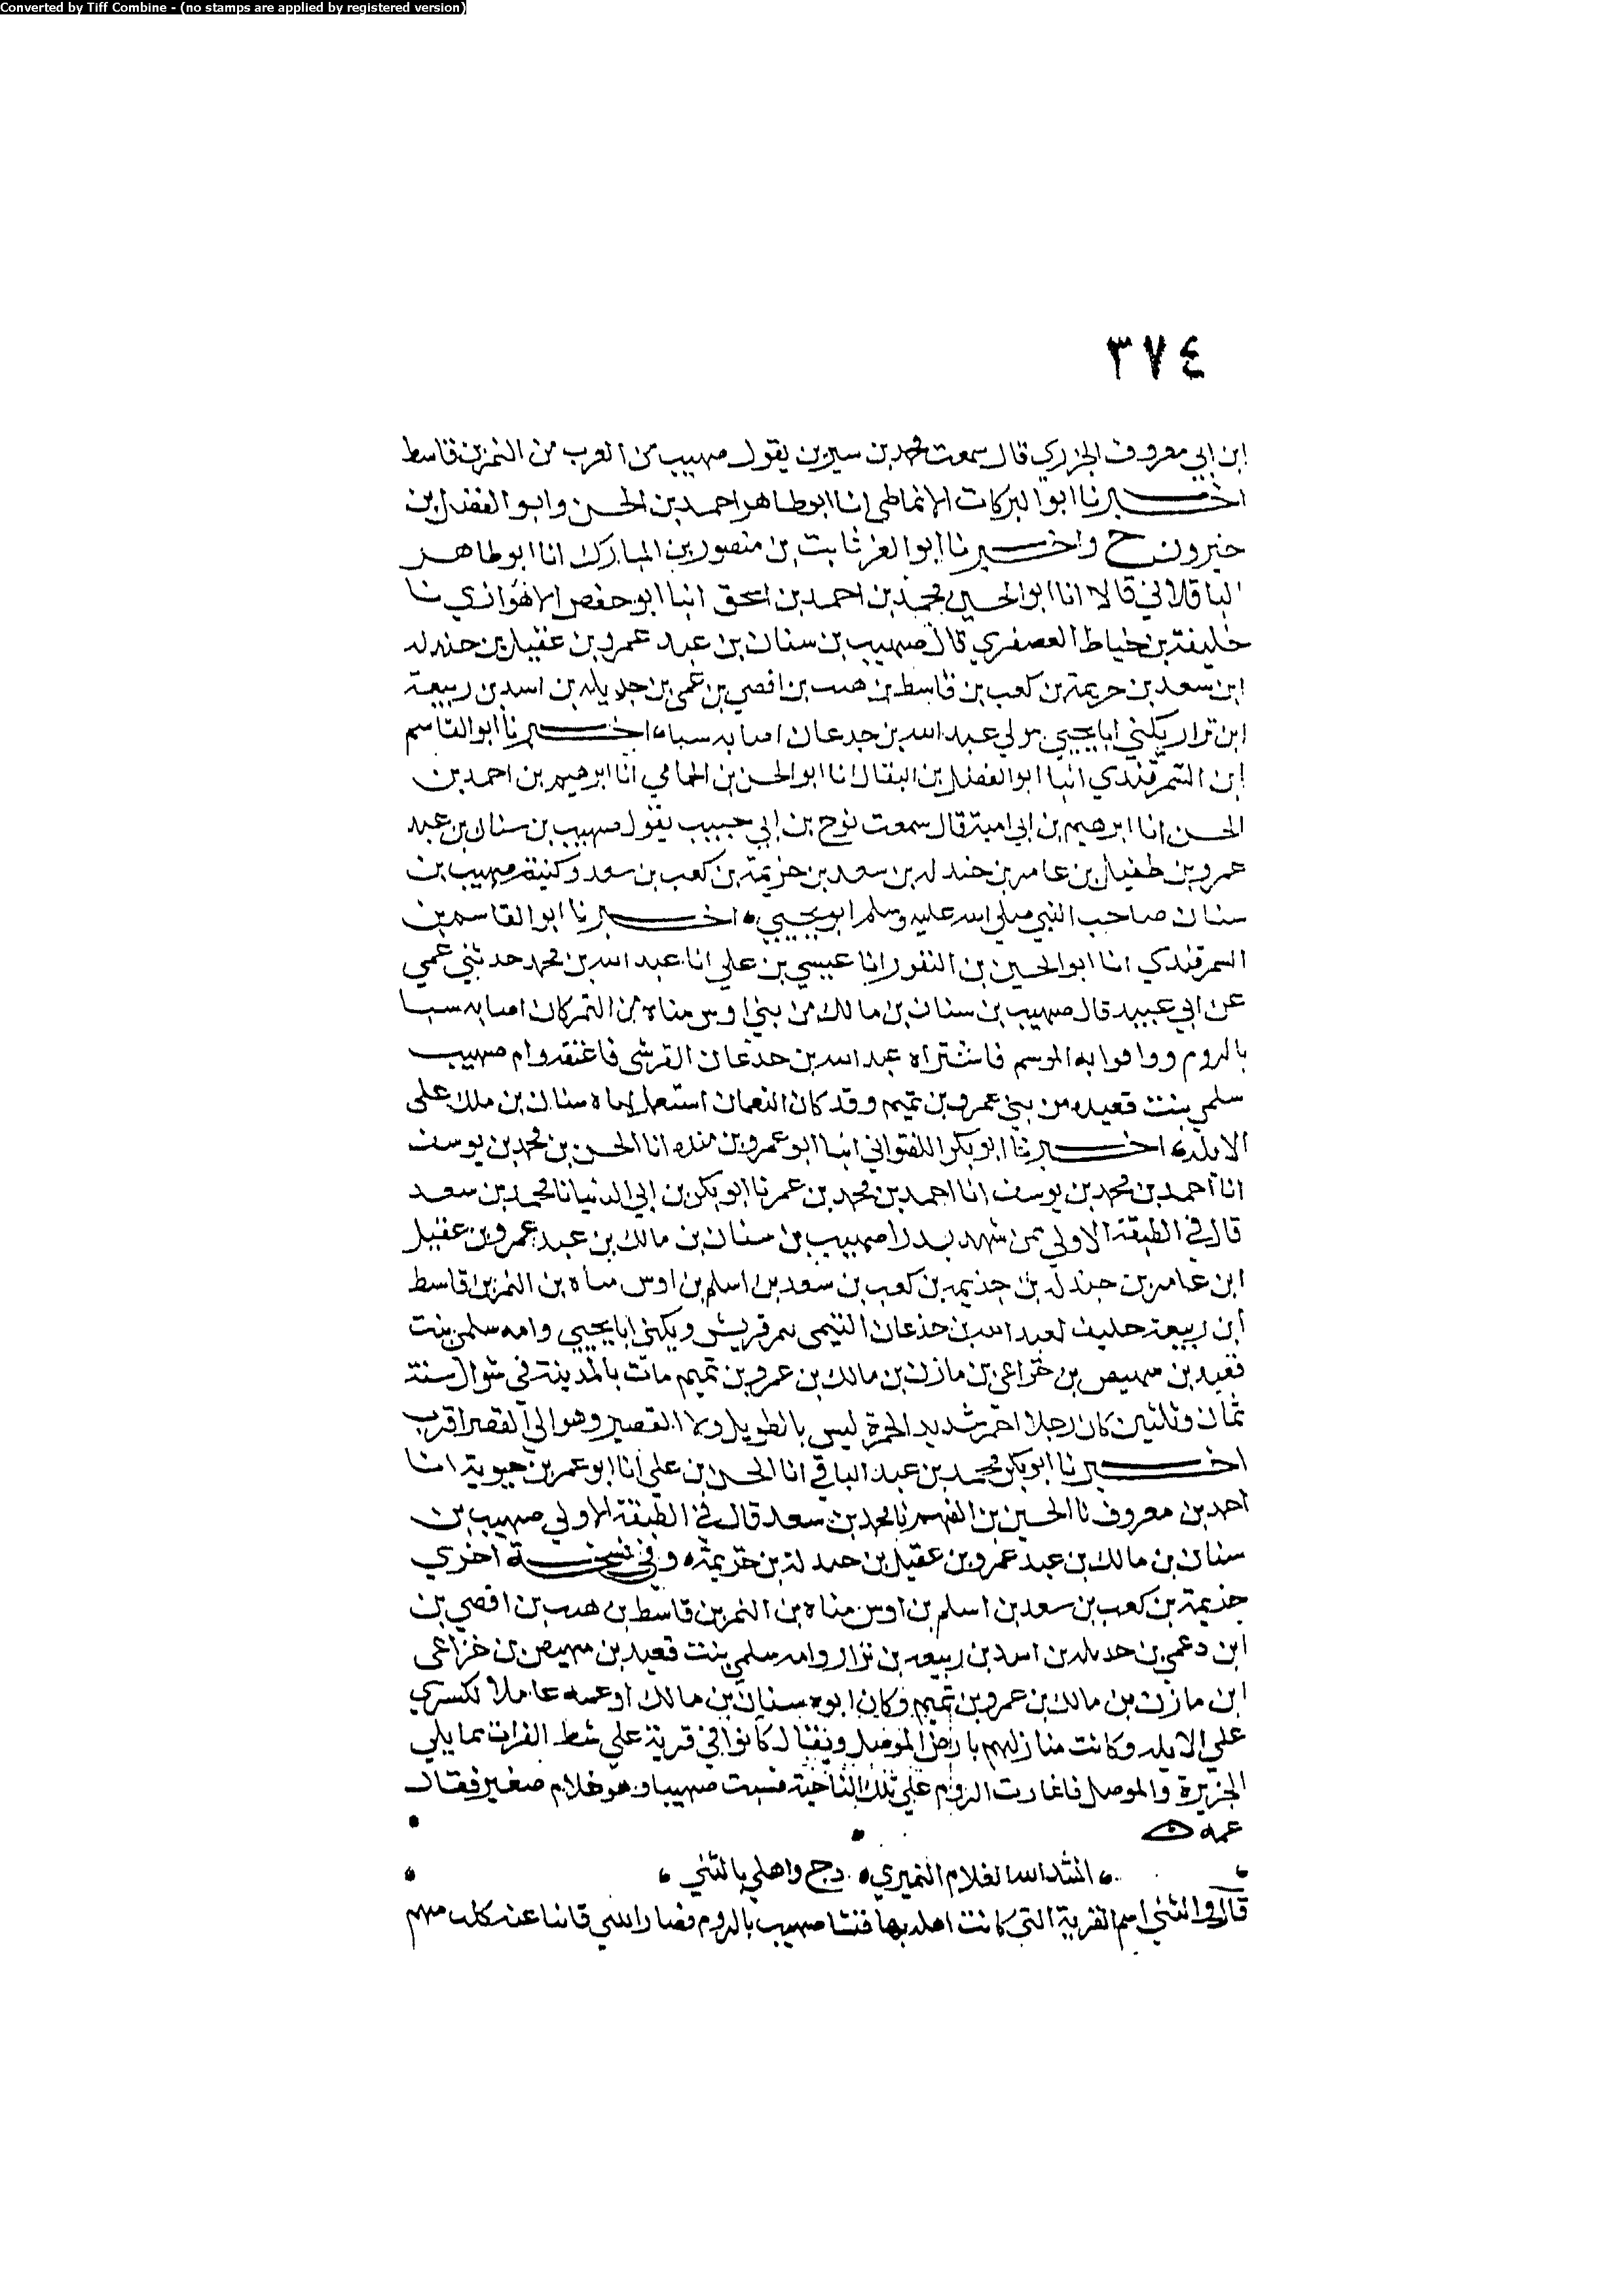 Converted by Tiff Combine - (no stamps are applied by registered version)
٣٧٤
ابن ابي معروف الجزري قال سمعت محمد بن سيرين يقول صهيب من العرب من النمر بن قاسط
اخبرنا ابو البركات الانماطي انا ابو طاهر احمد بن الحسن وابو الفضل بن
خيرون ح واخبرنا ابو العز ثابت بن منصور بن المبارك انا ابو طاهر
الباقلاني قالا انا ابو الحسين محمد بن احمد بن اسحق انبا ابو حفص الاهوازي نا
خليفة بن خياط العصفري قال صهيب بن سنان بن عبد عمرو بن عقيل بن جندله
ابن سعد بن خريمة بن كعب بن قاسط بن هنب بن افصي بن عمي بن جديله بن اسد بن ربيعة
ابن نزار يكني ابا يحيي مولي عبد الله بن جدعان اصابه سباء اخبرنا ابو القاسم
ابن السمرقندي انبا ابو الفضل بن البقال انا ابو الحسن بن الحمامي انا ابرهيم بن احمد بن
الحسن انا ابرهيم بن ابي امية قال سمعت نوح بن ابي حبيب يقول صهيب بن سنان بن عبد
عمرو بن طفيل بن عامر بن جندله بن سعد بن خزيمة بن كعب بن سعد وكنية صهيب بن
سنان صاحب النبي صلي الله عليه وسلم ابو يحيي اخبرنا ابو القاسم بن
السمرقندي انا ابو الحسين بن النقور انا عيسي بن علي انا عبد الله بن محمد حدثني عمي
عن ابي عبيد قال صهيب بن سنان بن مالك من بني اوس مناه من النمر كان اصابه سبا
بالروم ووافوا به الموسم فاشتراه عبد الله بن جدعان القرشي فاعتقه وام صهيب
سلمي بنت قعيد من بني عمرو بن تميم وقد كان النعمان استعمل اباه سنان بن ملك على
الابله اخبرنا ابو بكر اللفتواني انبا ابو عمرو بن منده انا الحسن بن محمد بن يوسف
انا احمد بن محمد بن يوسف انا احمد بن محمد بن عمر نا ابو بكر بن ابي الدنيا نا محمد بن سعد
قال في الطبقة الاولي ممن شهد بدرا صهيب بن سنان بن مالك بن عبد عمرو بن عقيل
ابن عامر بن جندلة بن جذيمه بن كعب بن سعد بن اسلم بن اوس مناه بن النمر بن قاسط
ابن ربيعة حليف لعبد الله بن جذعان التيمي من قريش ويكنى ابا يحيي وامه سلمى بنت
قعيد بن مهيص بن خزاعي بن مازن بن مالك بن عمرو بن تميم مات بالمدينة في شوال سنة
ثمان وثلثين كان رجلا احمر شديد الحمرة ليس بالطويل ولا القصير وهو الي القصر اقرب
اخبرنا ابو بكر محمد بن عبد الباقي انا الحسن بن علي انا ابو عمر بن حيوية انا
احمد بن معروف نا الحسين بن الفهم نا محمد بن سعد قال في الطبقة الاولي صهيب بن
سنان بن مالك بن عبد عمرو بن عقيل بن جندلة بن خزيمة وفي نسخة اخري
جذيمة بن كعب بن سعد بن اسلم بن اوس مناه بن النمر بن قاسط بن هنب بن افصي بن
ابن دعمي بن جديله بن اسد بن ربيعه بن نزار وامه سلمي بنت قعيد بن مهيص بن خزاعي
ابن مازن بن مالك بن عمرو بن تميم وكان ابوه سنان بن مالك او عمه عاملا لكسري
علي الابله وكانت منازلهم بارض الموصل ويقال كانوا في قرية علي شط الفرات مما يلي
الجزيرة والموصل فاغارت الروم علي تلك الناحية فسبت صهيبا وهو غلام صغير فقال
عمه
انشد الله الغلام النميري دج واهلي بالثني
قال والثني اسم القرية التي كانت اهله بها فنشا صهيب بالروم فصار السي فابتاعته كلب منهم